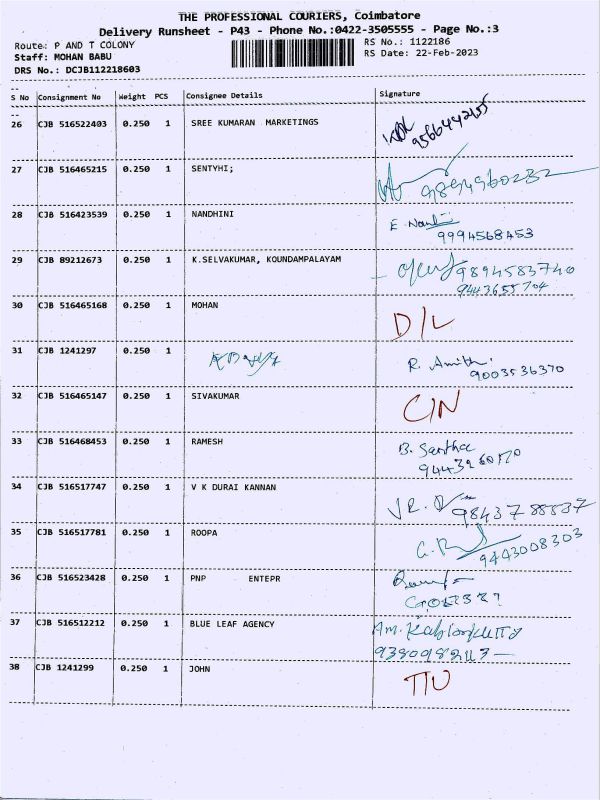 THE PROFESSIONAL COURIERS, Coimbatore
Delivery Runsheet - P43 - Phone No.:0422-3505555 - Page No.:3
Route: P AND T COLONY
RS No.: 1122186
Staff: MOHAN BABU
RS Date: 22-Feb-2023
DRS No.: DCJB112218603
S No Consignment No Weight PCS Consignee Details Signature
26 CJB 516522403 0.250 1 SREE KUMARAN MARKETINGS
27 CJB 516465215 0.250 1 SENTYHI; 9894960232
28 CJB 516423539 0.250 1 NANDHINI E
9994568453
29 CJB 89212673 0.250 1 K.SELVAKUMAR, KOUNDAMPALAYAM 9894583740
9443655704
30 CJB 516465168 0.250 1 MOHAN D/L
31 CJB 1241297 0.250 1 R. Amithi
9003536370
32 CJB 516465147 0.250 1 SIVAKUMAR C/N
33 CJB 516468453 0.250 1 RAMESH B. Santha
34 CJB 516517747 0.250 1 V K DURAI KANNAN
35 CJB 516517781 0.250 1 ROOPA
9443008303
36 CJB 516523428 0.250 1 PNP ENTEPR
37 CJB 516512212 0.250 1 BLUE LEAF AGENCY
38 CJB 1241299 0.250 1 JOHN